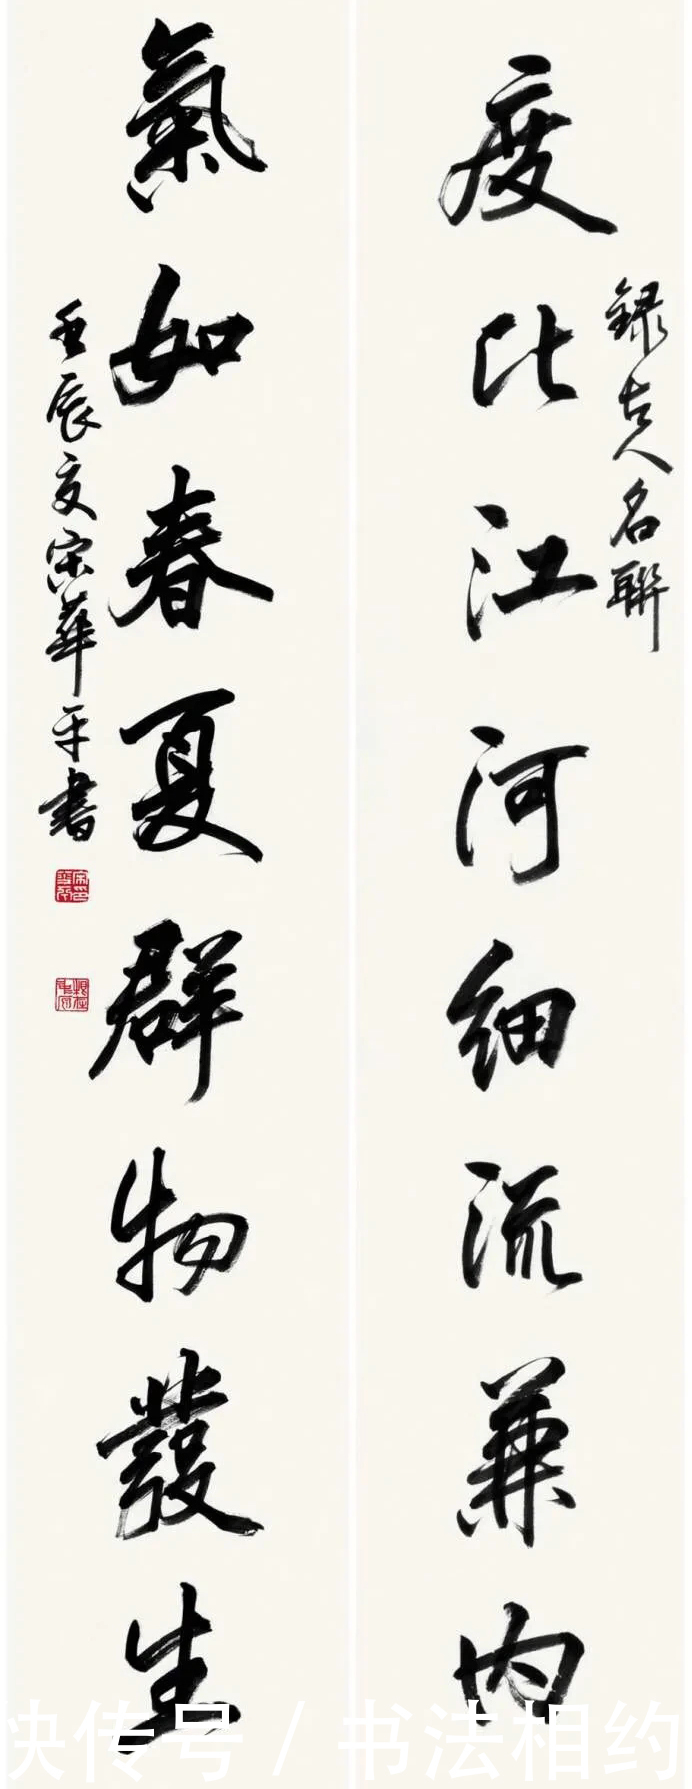 錄古人名聯
度比江河細流兼内
氣如春夏群物發生
壬辰夏宋華平書
快传号 / 书法相约